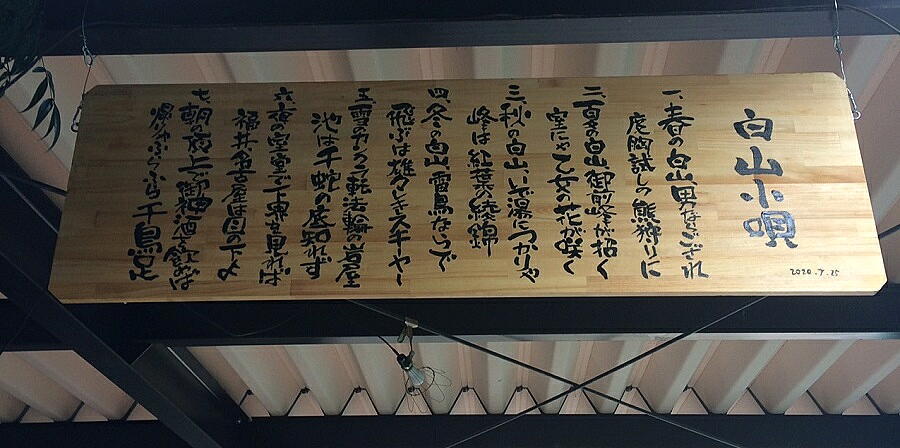 白山小唄
一、春の白山男ならござれ
度胸試しの熊狩りに
二、夏の白山御前峰が招く
室にゃ乙女の花が咲く
三、秋の白山いで湯につかりゃ
峰は紅葉の綾錦
四、冬の白山雷鳥ならいで
飛ぶは雄々しきスキーヤー
五、雪の 転法輪岩屋
池は千蛇の底知れず
六、夜の室堂で下界を見れば
福井名古屋は目の下よ
七、朝の頂上で御神酒を飲めば
帰りゃふらふら千鳥足
2020.7.25